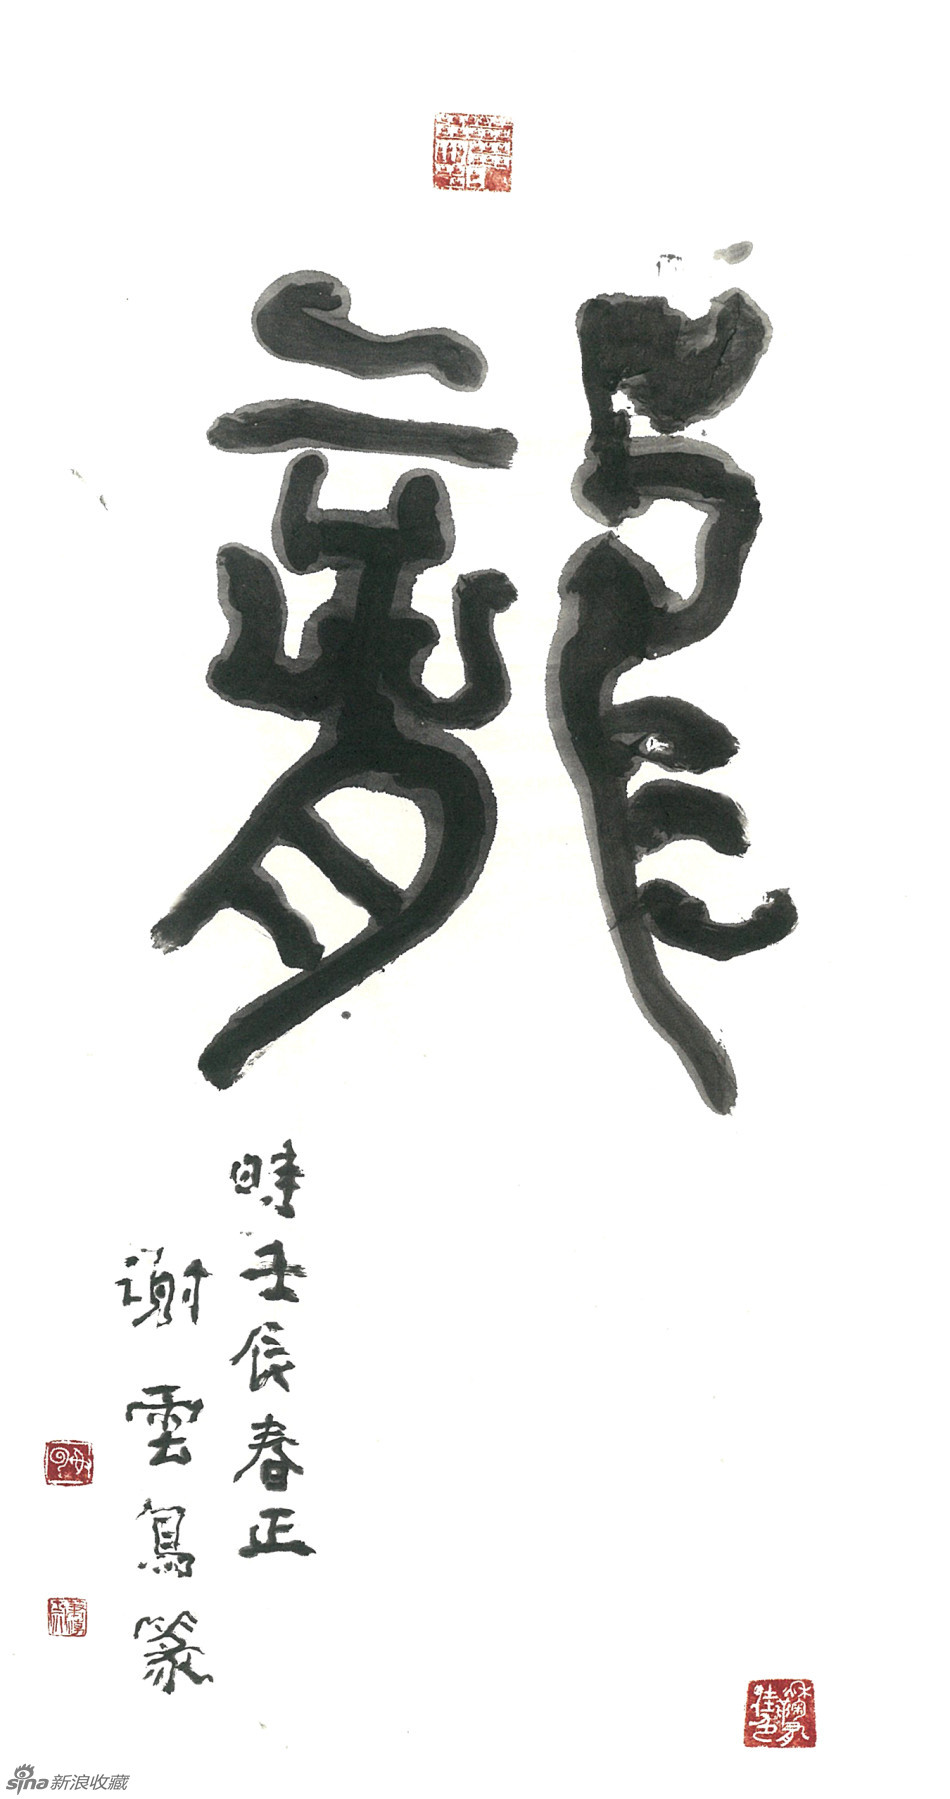 龍
時壬辰春正
謝雲鳥篆
sina新浪收藏